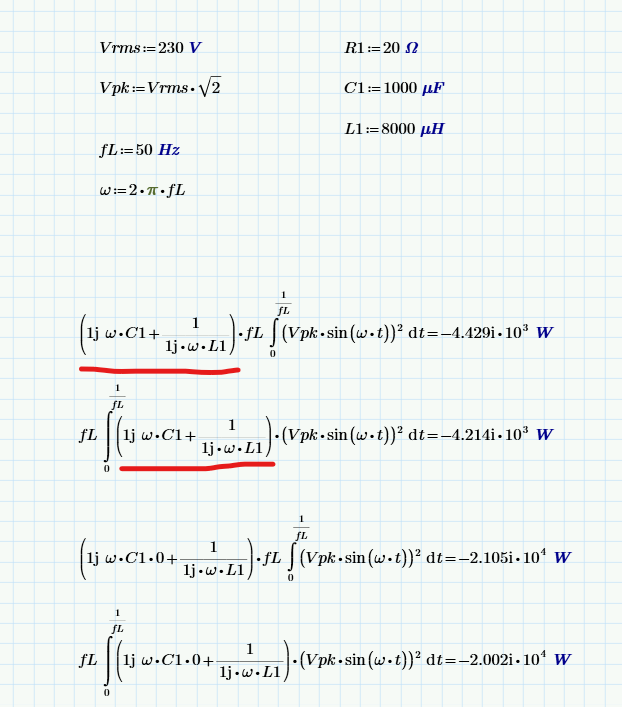 Vrms:=230 V R1:=20 Ω
Vpk:=Vrms·√2 C1:=1000 μF
L1:=8000 μH
fL:=50 Hz
ω:=2·π·fL
(1j ω·C1+1/(1j·ω·L1))·fL ∫₀^(1/fL) (Vpk·sin(ω·t))² dt=−4.429i·10³ W
fL ∫₀^(1/fL) (1j ω·C1+1/(1j·ω·L1))·(Vpk·sin(ω·t))² dt=−4.214i·10³ W
(1j ω·C1·0+1/(1j·ω·L1))·fL ∫₀^(1/fL) (Vpk·sin(ω·t))² dt=−2.105i·10⁴ W
fL ∫₀^(1/fL) (1j ω·C1·0+1/(1j·ω·L1))·(Vpk·sin(ω·t))² dt=−2.002i·10⁴ W